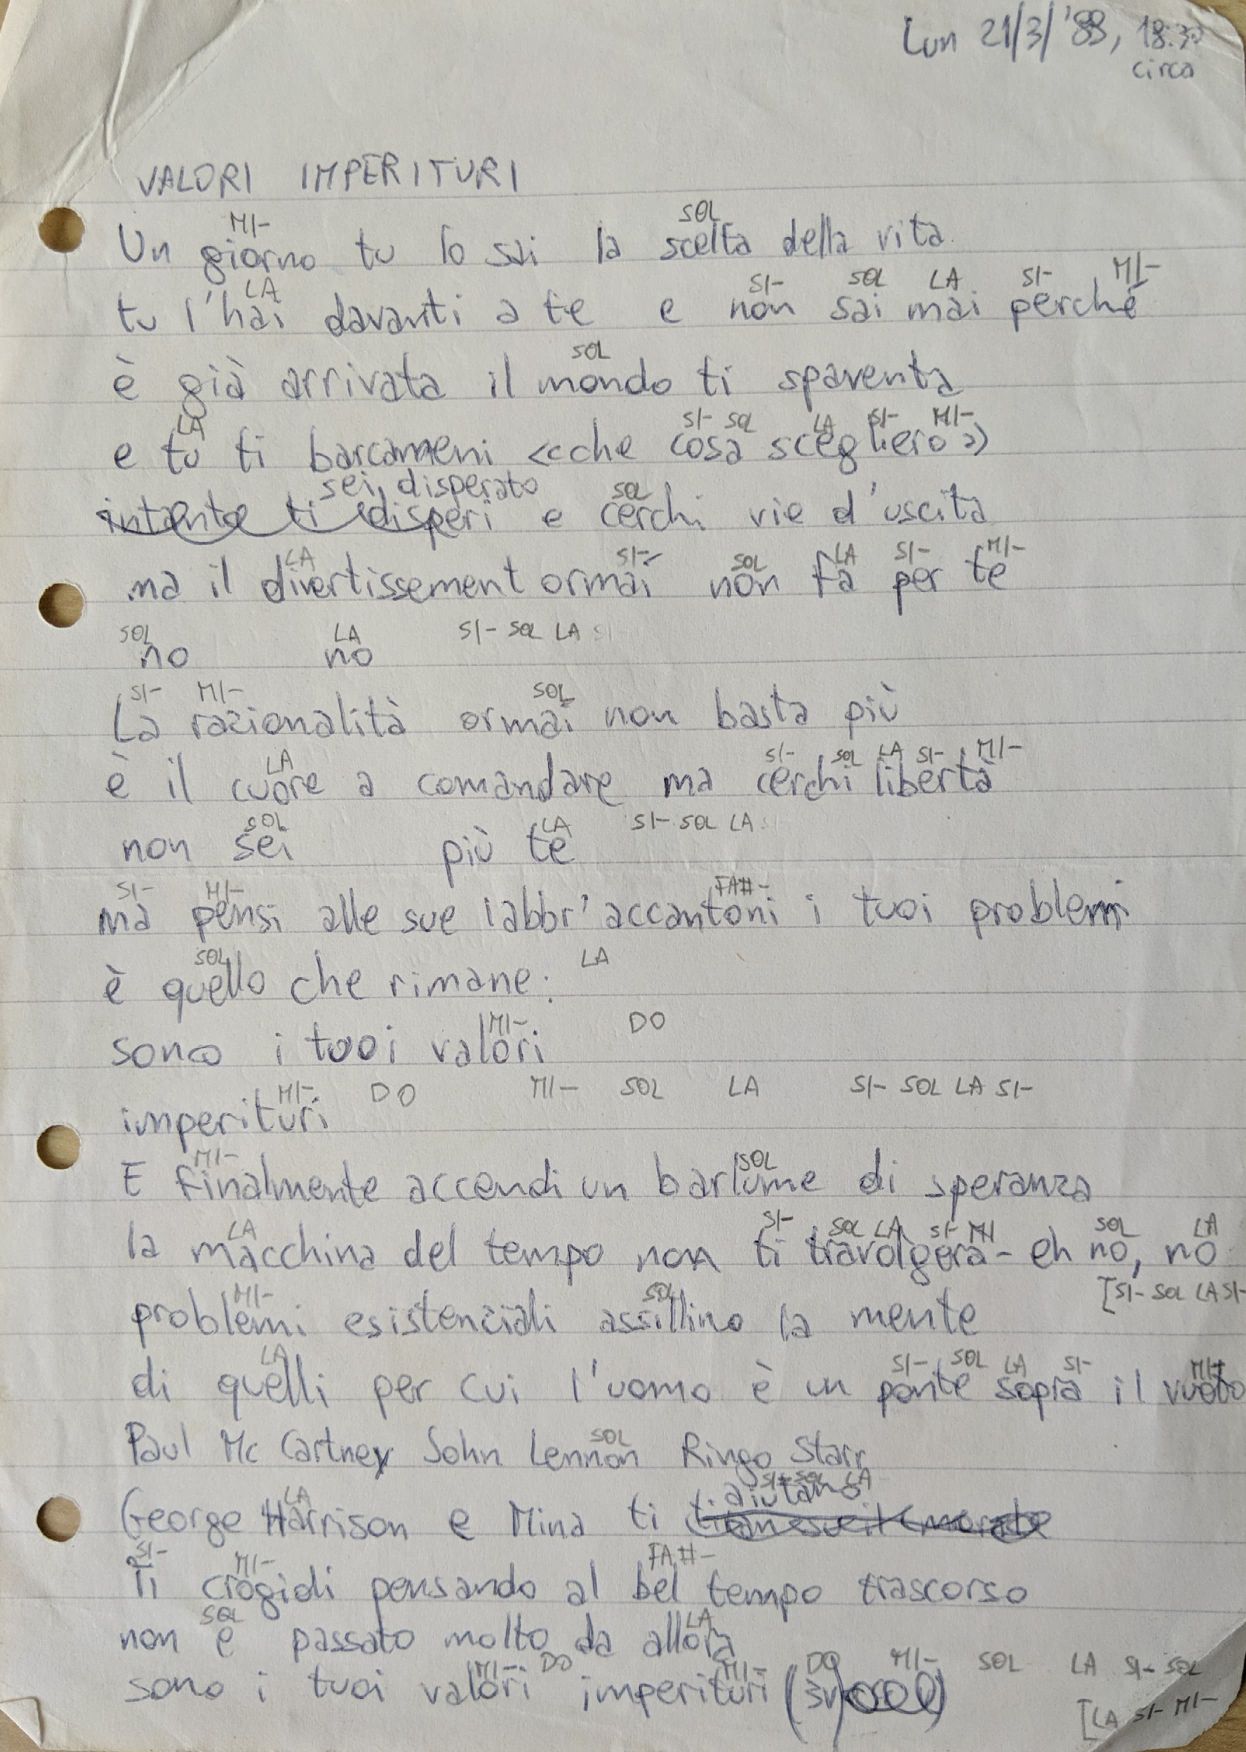 Lun 21/3/'88, 18:30
circa
VALORI IMPERITURI
MI- SOL
Un giorno tu lo sai la scelta della vita
LA SI- SOL LA SI- MI-
tu l'hai davanti a te e non sai mai perché
SOL
è già arrivata il mondo ti spaventa
LA SI- SOL LA SI- MI-
e tu ti barcameni <<che cosa sceglierò>>
sei disperato SOL
intanto ti disperi e cerchi vie d'uscita
LA SI- SOL LA SI- MI-
ma il divertissement ormai non fa per te
SOL LA SI- SOL LA SI-
no no
SI- MI- SOL
La razionalità ormai non basta più
LA SI- SOL LA SI- MI-
è il cuore a comandare ma cerchi libertà
SOL LA SI- SOL LA SI-
non sei più te
SI- MI- FA#-
ma pensi alle sue labbr' accantoni i tuoi problemi
SOL LA
è quello che rimane:
MI- DO
sono i tuoi valori
MI- DO MI- SOL LA SI- SOL LA SI-
imperituri
MI- SOL
E finalmente accendi un barlume di speranza
LA SI- SOL LA SI- MI SOL LA
la macchina del tempo non ti travolgerà - eh no, no
MI- SOL [SI- SOL LA SI-
problemi esistenziali assillino la mente
LA SI- SOL LA SI- MI#
di quelli per cui l'uomo è un ponte sopra il vuoto
SOL
Paul Mc Cartney John Lennon Ringo Starr
LA SI- SOL LA
aiutano
George Harrison e Mina ti
SI- MI- FA#-
Ti crogioli pensando al bel tempo trascorso
SOL LA
non è passato molto da allora
MI- DO MI- DO MI- SOL LA SI- SOL
sono i tuoi valori imperituri
[LA SI- MI-